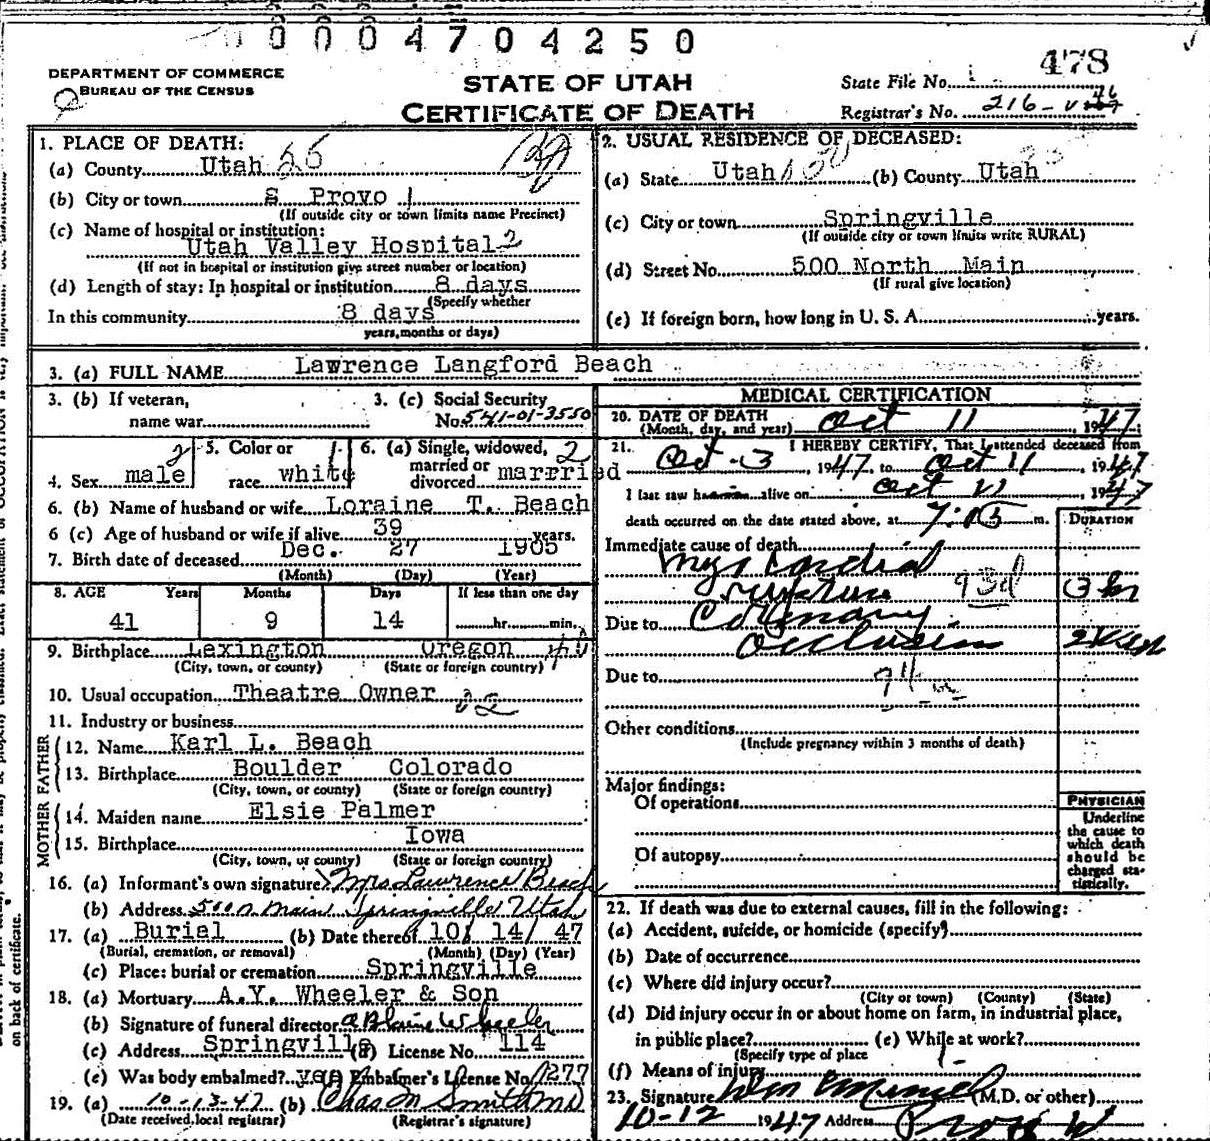 0004704250
478
DEPARTMENT OF COMMERCE
BUREAU OF THE CENSUS
STATE OF UTAH
CERTIFICATE OF DEATH
State File No.
Registrar's No. 216-
1. PLACE OF DEATH:
(a) County Utah 25
(b) City or town S Provo 1
(If outside city or town limits name Precinct)
(c) Name of hospital or institution:
Utah Valley Hospital 2
(If not in hospital or institution give street number or location)
(d) Length of stay: In hospital or institution 8 days
(Specify whether
In this community 8 days
years, months or days)
2. USUAL RESIDENCE OF DECEASED:
(a) State Utah (b) County Utah
(c) City or town Springville
(If outside city or town limits write RURAL)
(d) Street No. 500 North Main
(If rural give location)
(e) If foreign born, how long in U. S. A. years.
3. (a) FULL NAME Lawrence Langford Beach
3. (b) If veteran,
name war
3. (c) Social Security
No. 541-01-3550
4. Sex male 2
5. Color or
race white 1
6. (a) Single, widowed, 2
married or
divorced marrried
6. (b) Name of husband or wife Loraine T. Beach
6 (c) Age of husband or wife if alive 39 years.
7. Birth date of deceased Dec. 27 1905
(Month) (Day) (Year)
8. AGE Years Months Days If less than one day
41 9 14 hr. min.
9. Birthplace Lexington Oregon
(City, town, or county) (State or foreign country)
10. Usual occupation Theatre Owner
11. Industry or business
FATHER
12. Name Karl L. Beach
13. Birthplace Boulder Colorado
(City, town, or county) (State or foreign country)
MOTHER
14. Maiden name Elsie Palmer
15. Birthplace Iowa
(City, town, or county) (State or foreign country)
16. (a) Informant's own signature Mrs Lawrence Beach
(b) Address 500 N Main Springville Utah
17. (a) Burial (b) Date thereof 10/ 14/ 47
(Burial, cremation, or removal) (Month) (Day) (Year)
(c) Place: burial or cremation Springville
18. (a) Mortuary A.Y. Wheeler & Son
(b) Signature of funeral director A Blaine Wheeler
(c) Address Springville (d) License No. 114
(e) Was body embalmed? yes (f) Embalmer's License No. 277
19. (a) 10-13-47 (b) Chas M Smith MD
(Date received local registrar) (Registrar's signature)
MEDICAL CERTIFICATION
20. DATE OF DEATH
(Month, day, and year) Oct 11, 1947
21. I HEREBY CERTIFY, That I attended deceased from
Oct 3, 1947, to Oct 11, 1947
I last saw h alive on Oct 11, 1947
death occurred on the date stated above, at 7:05 m.
DURATION
Immediate cause of death
Myocardial
rupture 93d 3 hr
Due to Coronary
Occlusion
Due to
Other conditions
(Include pregnancy within 3 months of death)
Major findings:
Of operations
Of autopsy
PHYSICIAN
Underline
the cause to
which death
should be
charged sta-
tistically.
22. If death was due to external causes, fill in the following:
(a) Accident, suicide, or homicide (specify)
(b) Date of occurrence
(c) Where did injury occur?
(City or town) (County) (State)
(d) Did injury occur in or about home on farm, in industrial place,
in public place? (e) While at work?
(Specify type of place
(f) Means of injury
23. Signature (M.D. or other)
10-12 1947 Address Provo
on back of certificate.